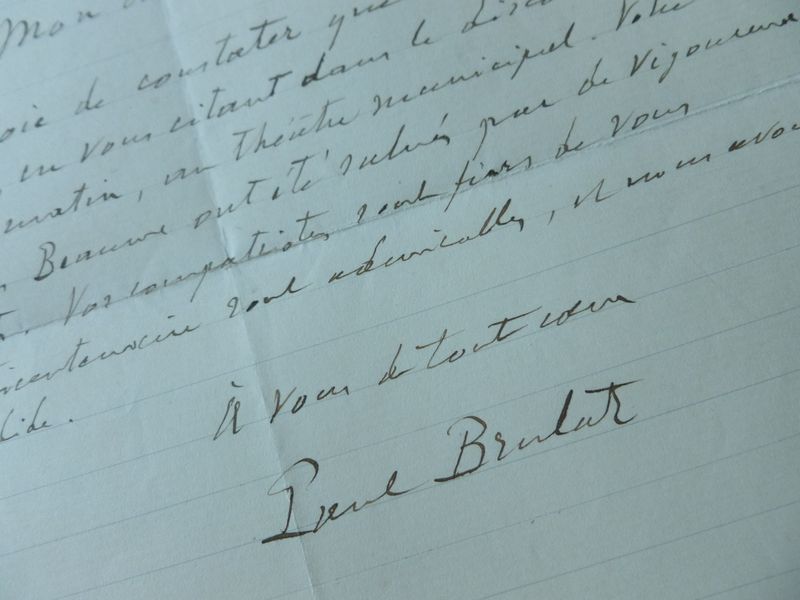 Mon
de constater que
en vous citant dans le
matin, au théâtre municipal. Votre
Beaune ont été salués par de vigoureux
Vos compatriotes sont fiers de vous
sont admirables, et nous
À vous de tout cœur
Paul Brulat